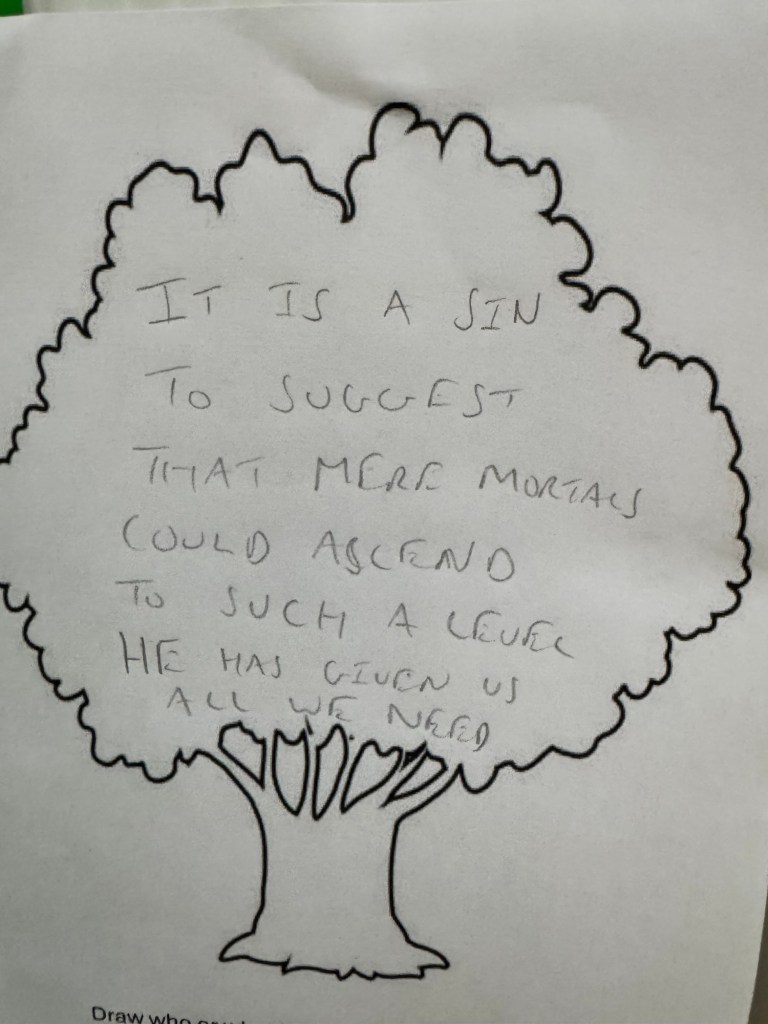 IT IS A SIN
TO SUGGEST
THAT MERE MORTALS
COULD ASCEND
TO SUCH A LEVEL
HE HAS GIVEN US
ALL WE NEED
Draw who